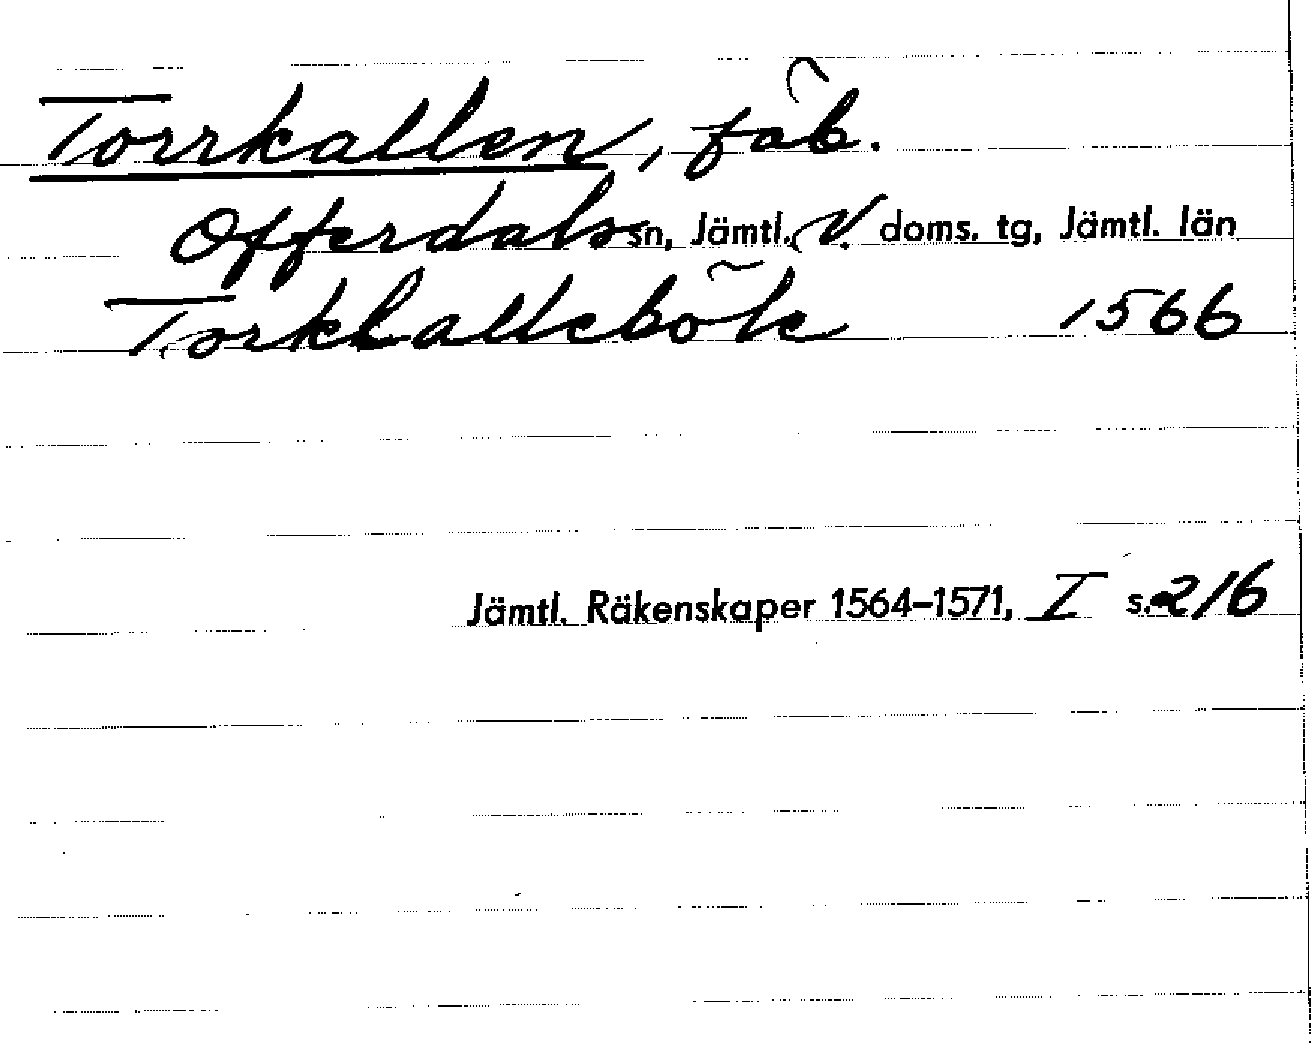 Torrkallen, fäb.
Offerdals sn, Jämtl. V. doms. tg, Jämtl. län
Torkkalleböle 1566
Jämtl. Räkenskaper 1564-1571, I s. 216